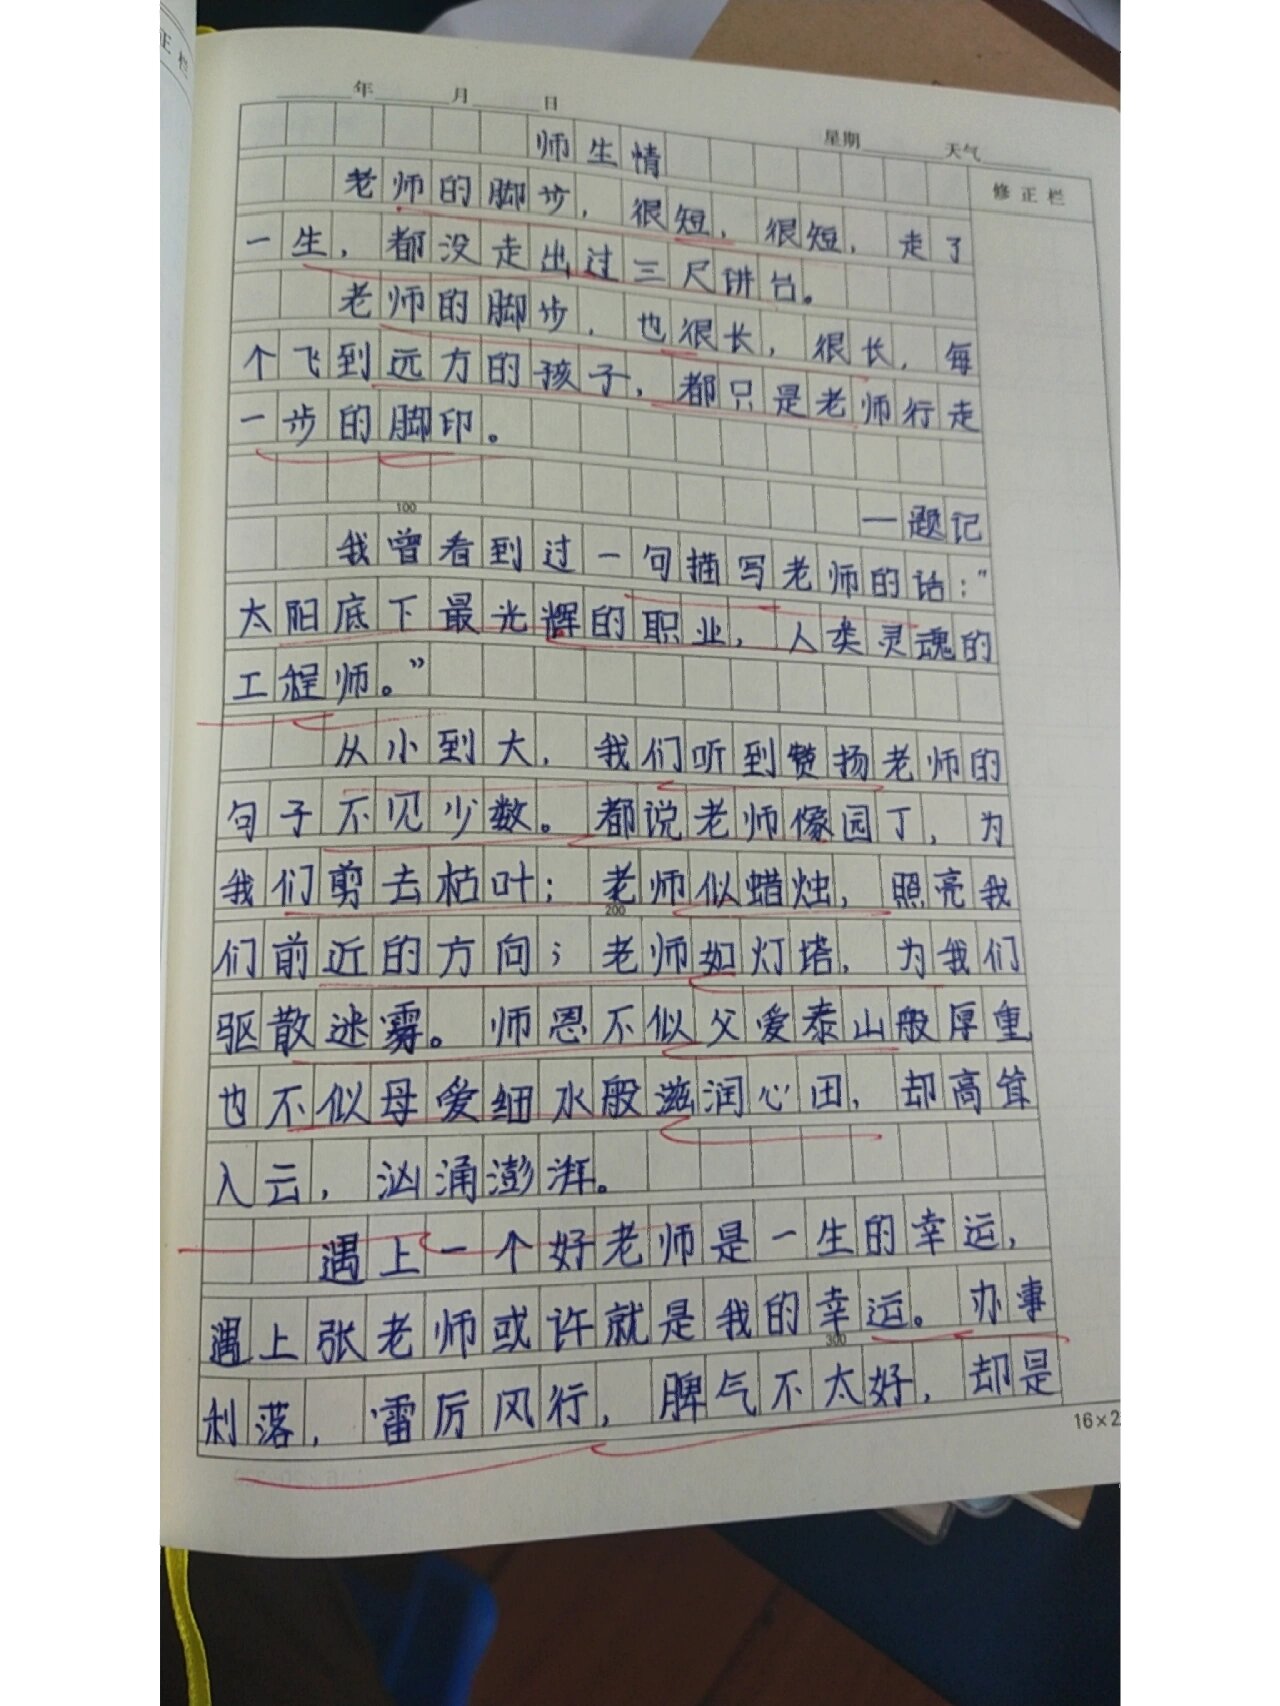 正栏
年 月 日
星期 天气
修正栏
师生情
老师的脚步，很短，很短，走了
一生，都没走出过三尺讲台。
老师的脚步，也很长，很长，每
个飞到远方的孩子，都只是老师行走
一步的脚印。
—题记
100
我曾看到过一句描写老师的话："
太阳底下最光辉的职业，人类灵魂的
工程师。”
从小到大，我们听到赞扬老师的
句子不见少数。都说老师像园丁，为
我们剪去枯叶；老师似蜡烛，照亮我
200
们前近的方向；老师如灯塔，为我们
驱散迷雾。师恩不似父爱泰山般厚重
也不似母爱细水般滋润心田，却高耸
入云，汹涌澎湃。
遇上一个好老师是一生的幸运，
遇上张老师或许就是我的幸运。办事
300
利落，雷厉风行，脾气不太好，却是
16×2